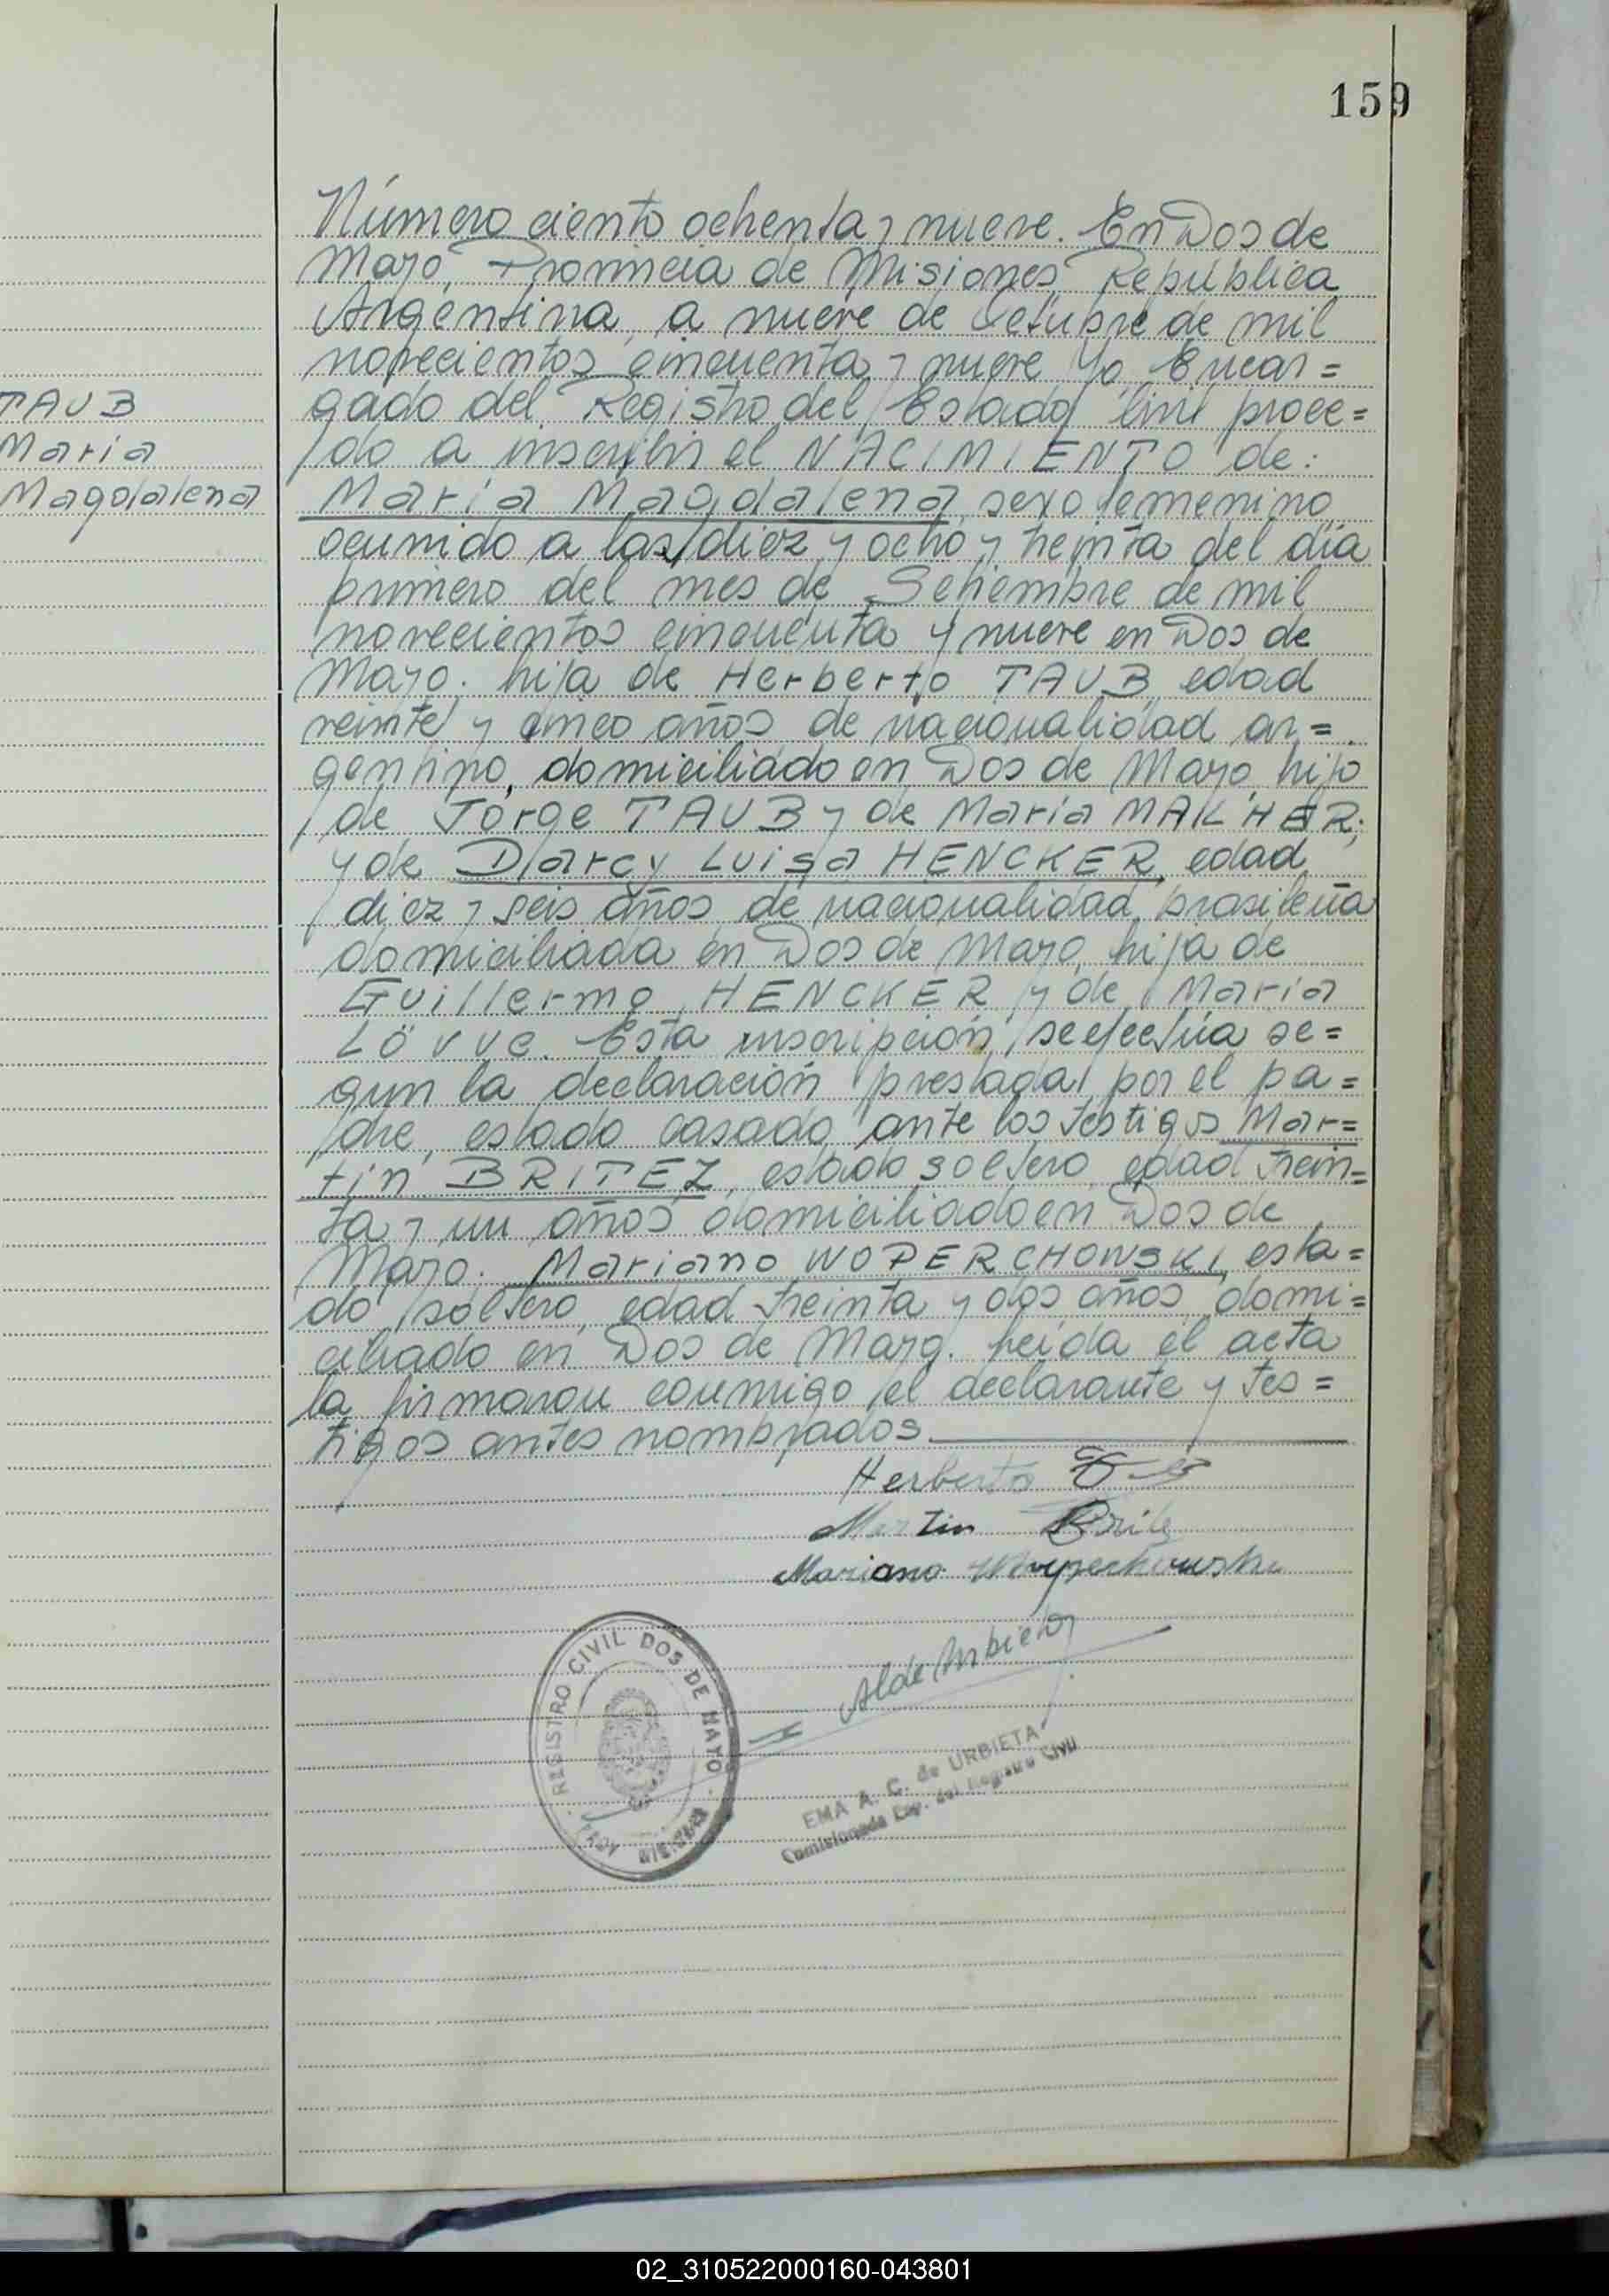 159
Número ciento ochenta y nueve. En Dos de
Mayo, Provincia de Misiones, República
Argentina, a nueve de Octubre de mil
novecientos cincuenta y nueve Yo Encar=
gado del Registro del Estado Civil proce=
do a inscribir el NACIMIENTO de:
TAUB
María
Magdalena
María Magdalena, sexo femenino
ocurrido a las diez y ocho y treinta del día
primero del mes de Setiembre de mil
novecientos cincuenta y nueve en Dos de
Mayo. hija de Herberto TAUB, edad
veinte y cinco años de nacionalidad ar=
gentino, domiciliado en Dos de Mayo, hijo
de Jorge TAUB y de María MALCHER;
y de Darcy Luisa HENCKER, edad
diez y seis años de nacionalidad brasileña
domiciliada en Dos de Mayo, hija de
Guillermo HENCKER y de María
Esta inscripción se efectúa se=
gun la declaración prestada por el pa=
dre, estado casado ante los testigos Mar=
tin BRITEZ, estado soltero, edad trein=
ta y un años domiciliado en Dos de
Mayo. Mariano WOPERCHOWSKI, esta=
do soltero, edad treinta y dos años domi=
ciliado en Dos de Mayo. Leída el acta
la firmaron conmigo el declarante y tes=
tigos antes nombrados
Herberto
Martin Brite
Mariano Woperchowski
REGISTRO CIVIL DOS DE MAYO
EMA A. C. de URBIETA
Comisionada Esp. del Registro Civil
02_310522000160-043801